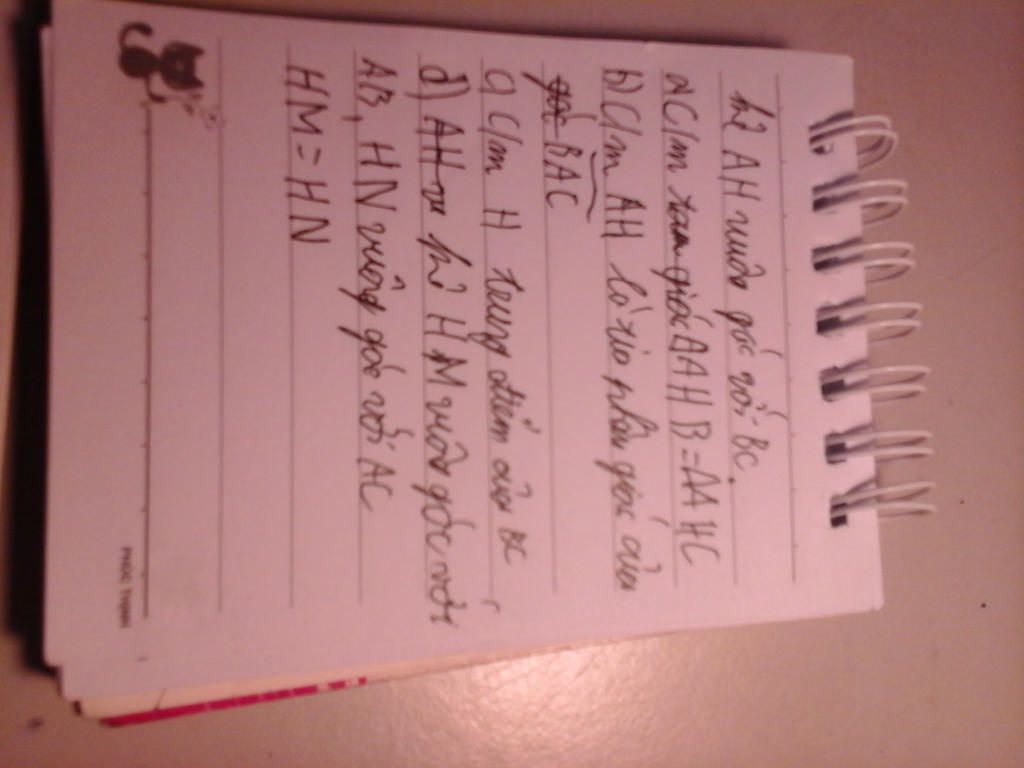 kẻ AH vuông góc với BC.
a) C/m tam giác ΔAHB = ΔAHC
b) C/m AH là tia phân giác của
góc BAC
c) C/m H trung điểm của BC
d) AH kẻ HM vuông góc với
AB, HN vuông góc với AC
HM = HN
PHÚC THỊNH